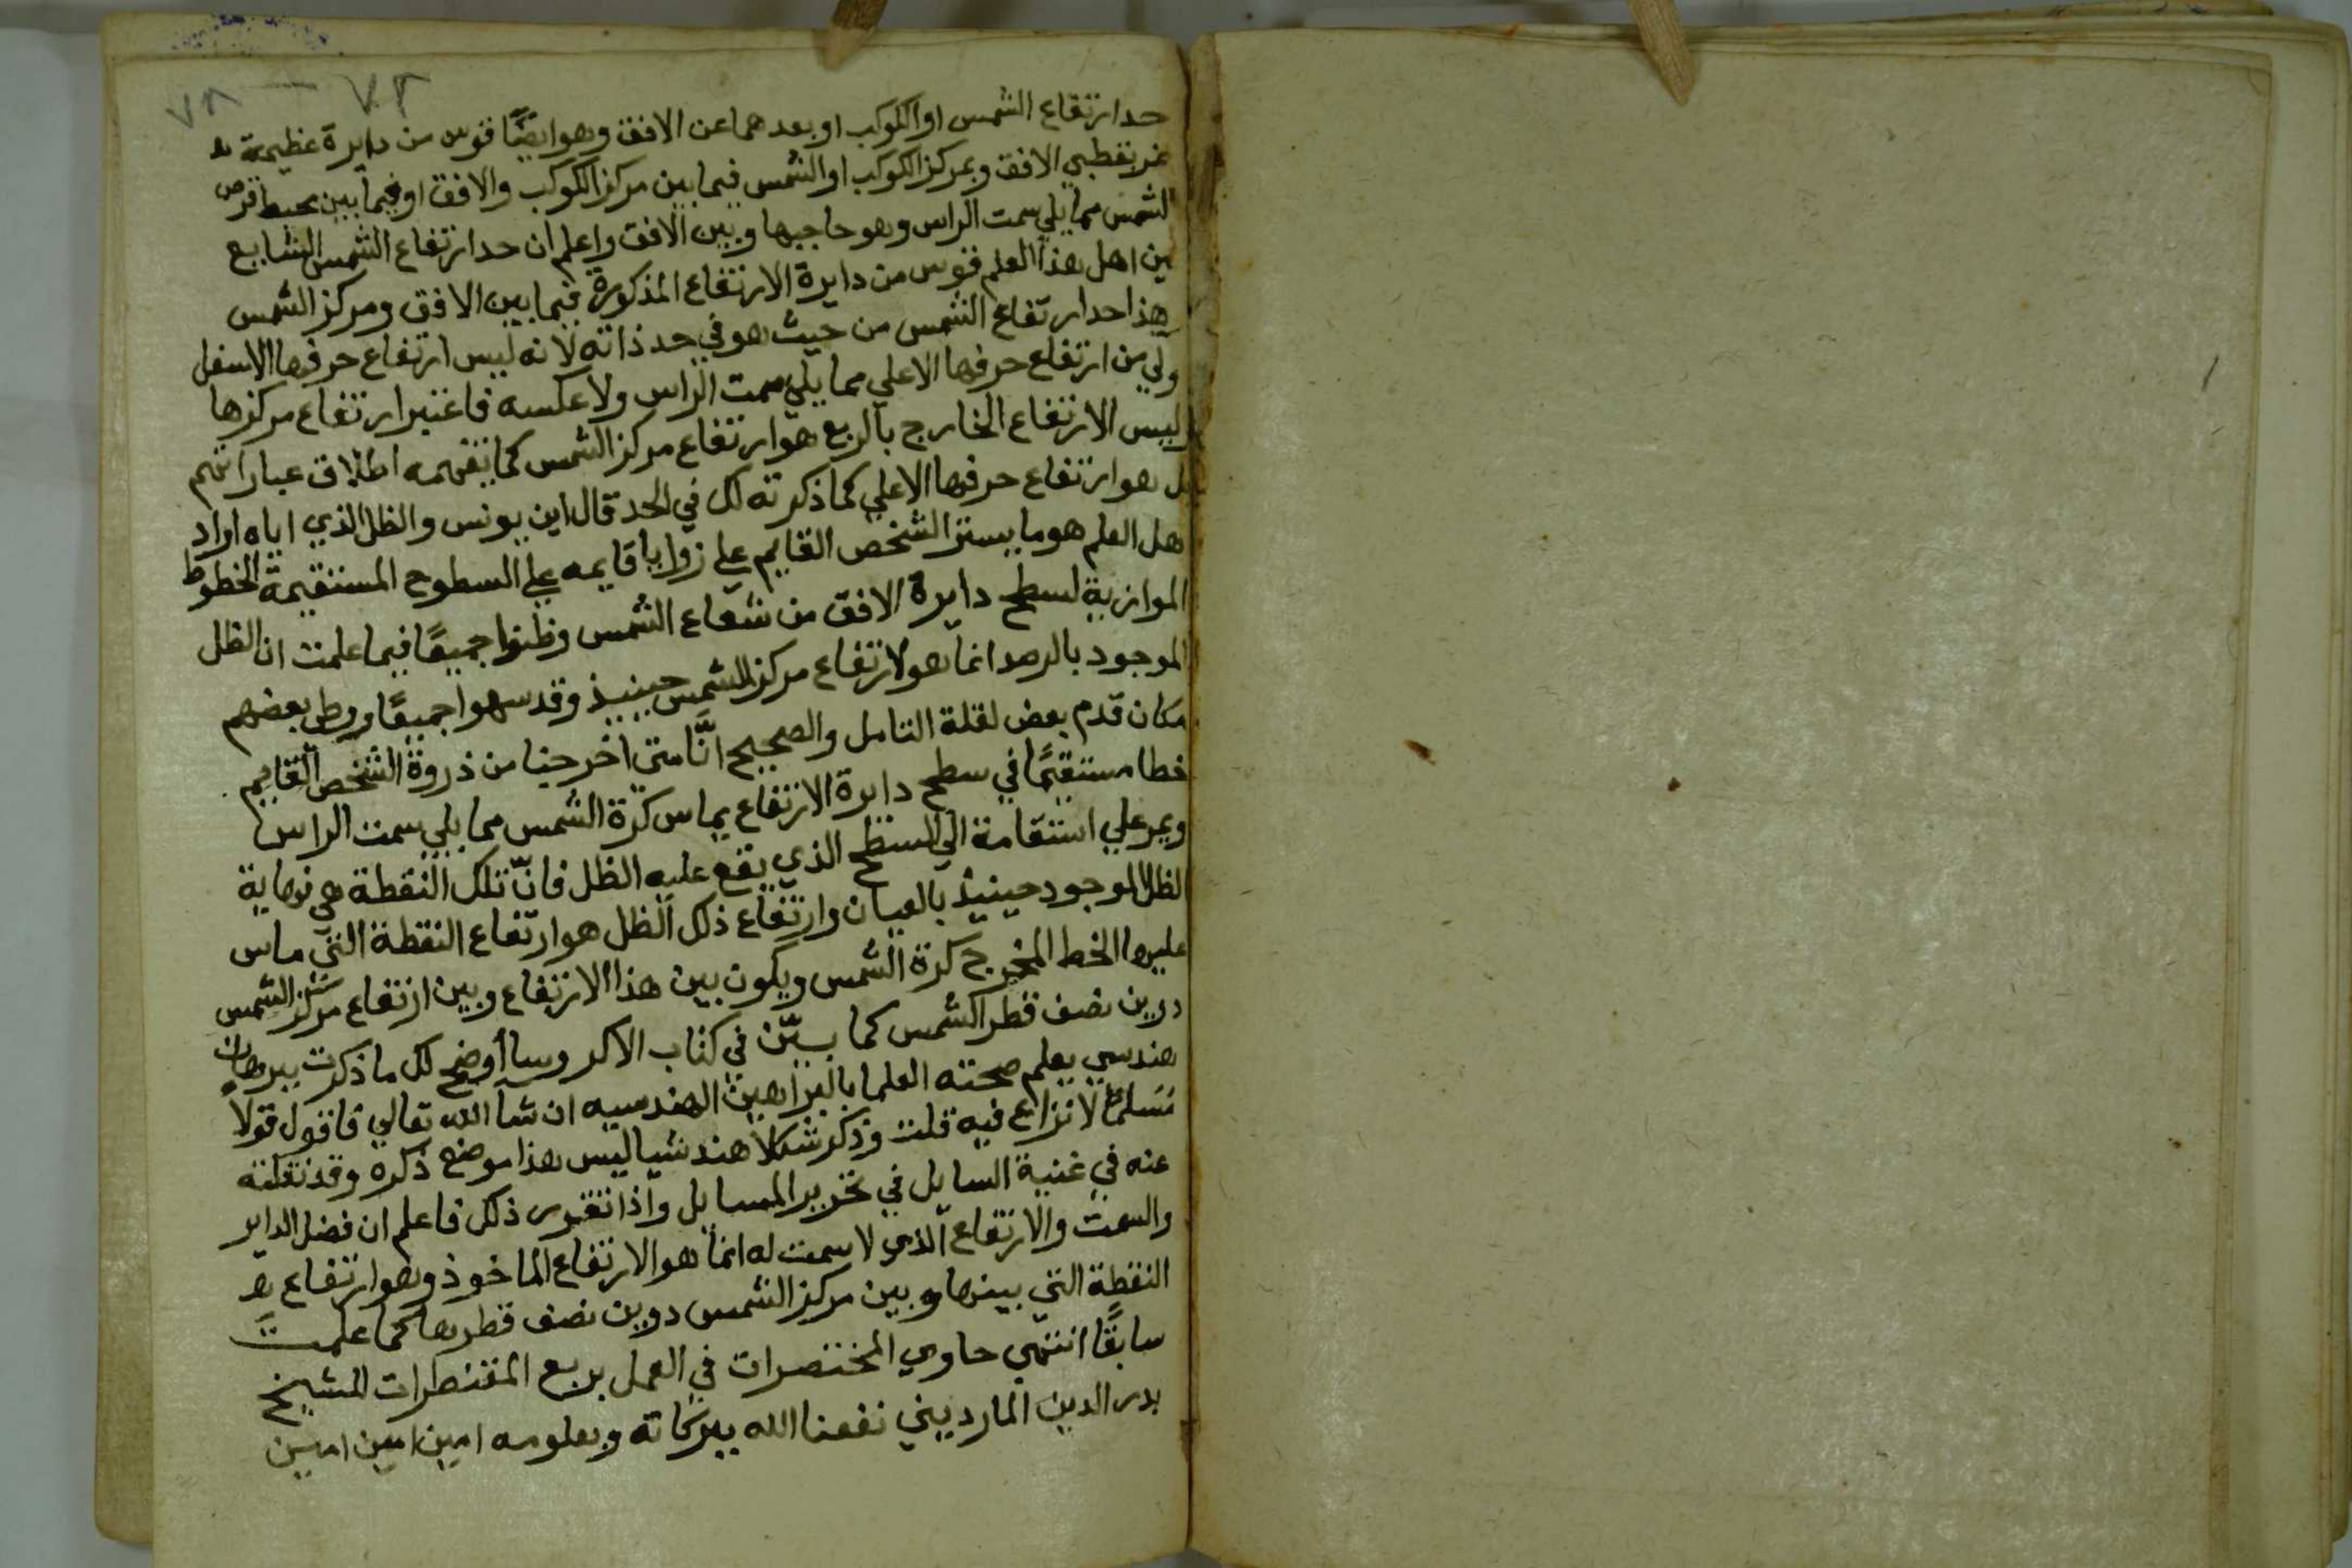 ٧٢ — ٧٨
حد ارتفاع الشمس او الكوكب او بعدهما عن الافق وهو ايضًا قوس من دايرة عظيمة
تمر بقطبي الافق وبمركز الكوكب او الشمس فيما بين مركز الكوكب والافق او فيما بين محيط قرص
الشمس مما يلي سمت الراس وهو حاجبها وبين الافق واعلم ان حد ارتفاع الشمس الشايع
بين اهل هذا العلم قوس من دايرة الارتفاع المذكورة فيما بين الافق ومركز الشمس
وهذا حد ارتفاع الشمس من حيث هو في حد ذاته لانه ليس ارتفاع حرفها الاسفل
اولي من ارتفاع حرفها الاعلي مما يلي سمت الراس ولا عكسه فاعتبر ارتفاع مركزها
وليس الارتفاع الخارج بالربع هو ارتفاع مركز الشمس كما تفهمه اطلاق عباراتهم
بل هو ارتفاع حرفها الاعلي كما ذكرته لك في الحد قال ابن يونس والظل الذي اياه اراد
اهل العلم هو ما يستر الشخص القايم علي زوايا قايمه علي السطوح المستقيمة الخطوط
الموازية لسطح دايرة الافق من شعاع الشمس وظنوا جميعًا فيما علمت ان الظل
الموجود بالرصد انما هو لارتفاع مركز الشمس حينيذ وقد سهوا جميعًا ووطي بعضهم
مكان قدم بعض لقلة التامل والصحيح انَّا متي اخرجنا من ذروة الشخص القايم
خطا مستقيمًا في سطح دايرة الارتفاع يماس كرة الشمس مما يلي سمت الراس
ويمر علي استقامة الي السطح الذي يقع عليه الظل فانّ تلك النقطة هي نهاية
الظل الموجود حينيذ بالعيان وارتفاع ذلك الظل هو ارتفاع النقطة التي ماس
عليها الخط المخرج كرة الشمس ويكون بين هذا الارتفاع وبين ارتفاع مركز الشمس
دوين نصف قطر الشمس كما بيّن في كتاب الاكر وسأوضح لك ما ذكرت ببرهان
هندسي يعلم صحته العلما بالبراهين الهندسيه ان شا الله تعالي فاقول قولاً
مسلمًا لا نزاع فيه قلت وذكر شكلا هندسيا ليس هذا موضع ذكره وقد نقلته
عنه في غنية السايل في تحرير المسايل واذا تقرر ذلك فاعلم ان فضل الداير
والسمت والارتفاع الذي لا سمت له انما هو الارتفاع الماخوذ وهو ارتفاع
النقطة التي بينها وبين مركز الشمس دوين نصف قطرها كما علمت
سابقًا انتهي حاوي المختصرات في العمل بربع المقنطرات للشيخ
بدر الدين المارديني نفعنا الله ببركاته وبعلومه امين امين امين